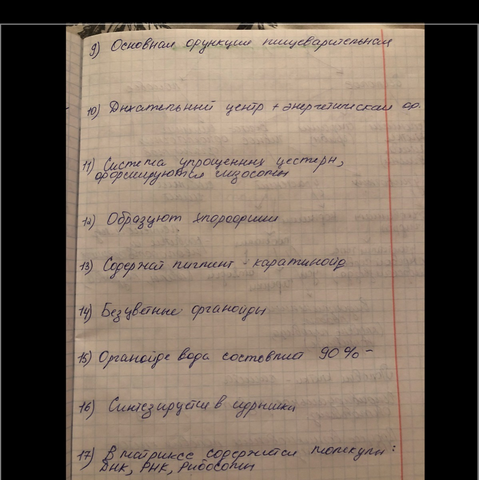 9) Основная функция пищеварительная
10) Дыхательный центр + энергетическая ф.
11) Система упрощенных цестерн,
оформируются лизосомы
12) Образуют хлорофилл
13) Содержат пигмент - каратиноид
14) Безцветные органоиды
15) Органойде вода составляет 90% -
16) Синтезируется в ядрышки
17) В матриксе содержатся молекулы:
ДНК, РНК, рибосомы